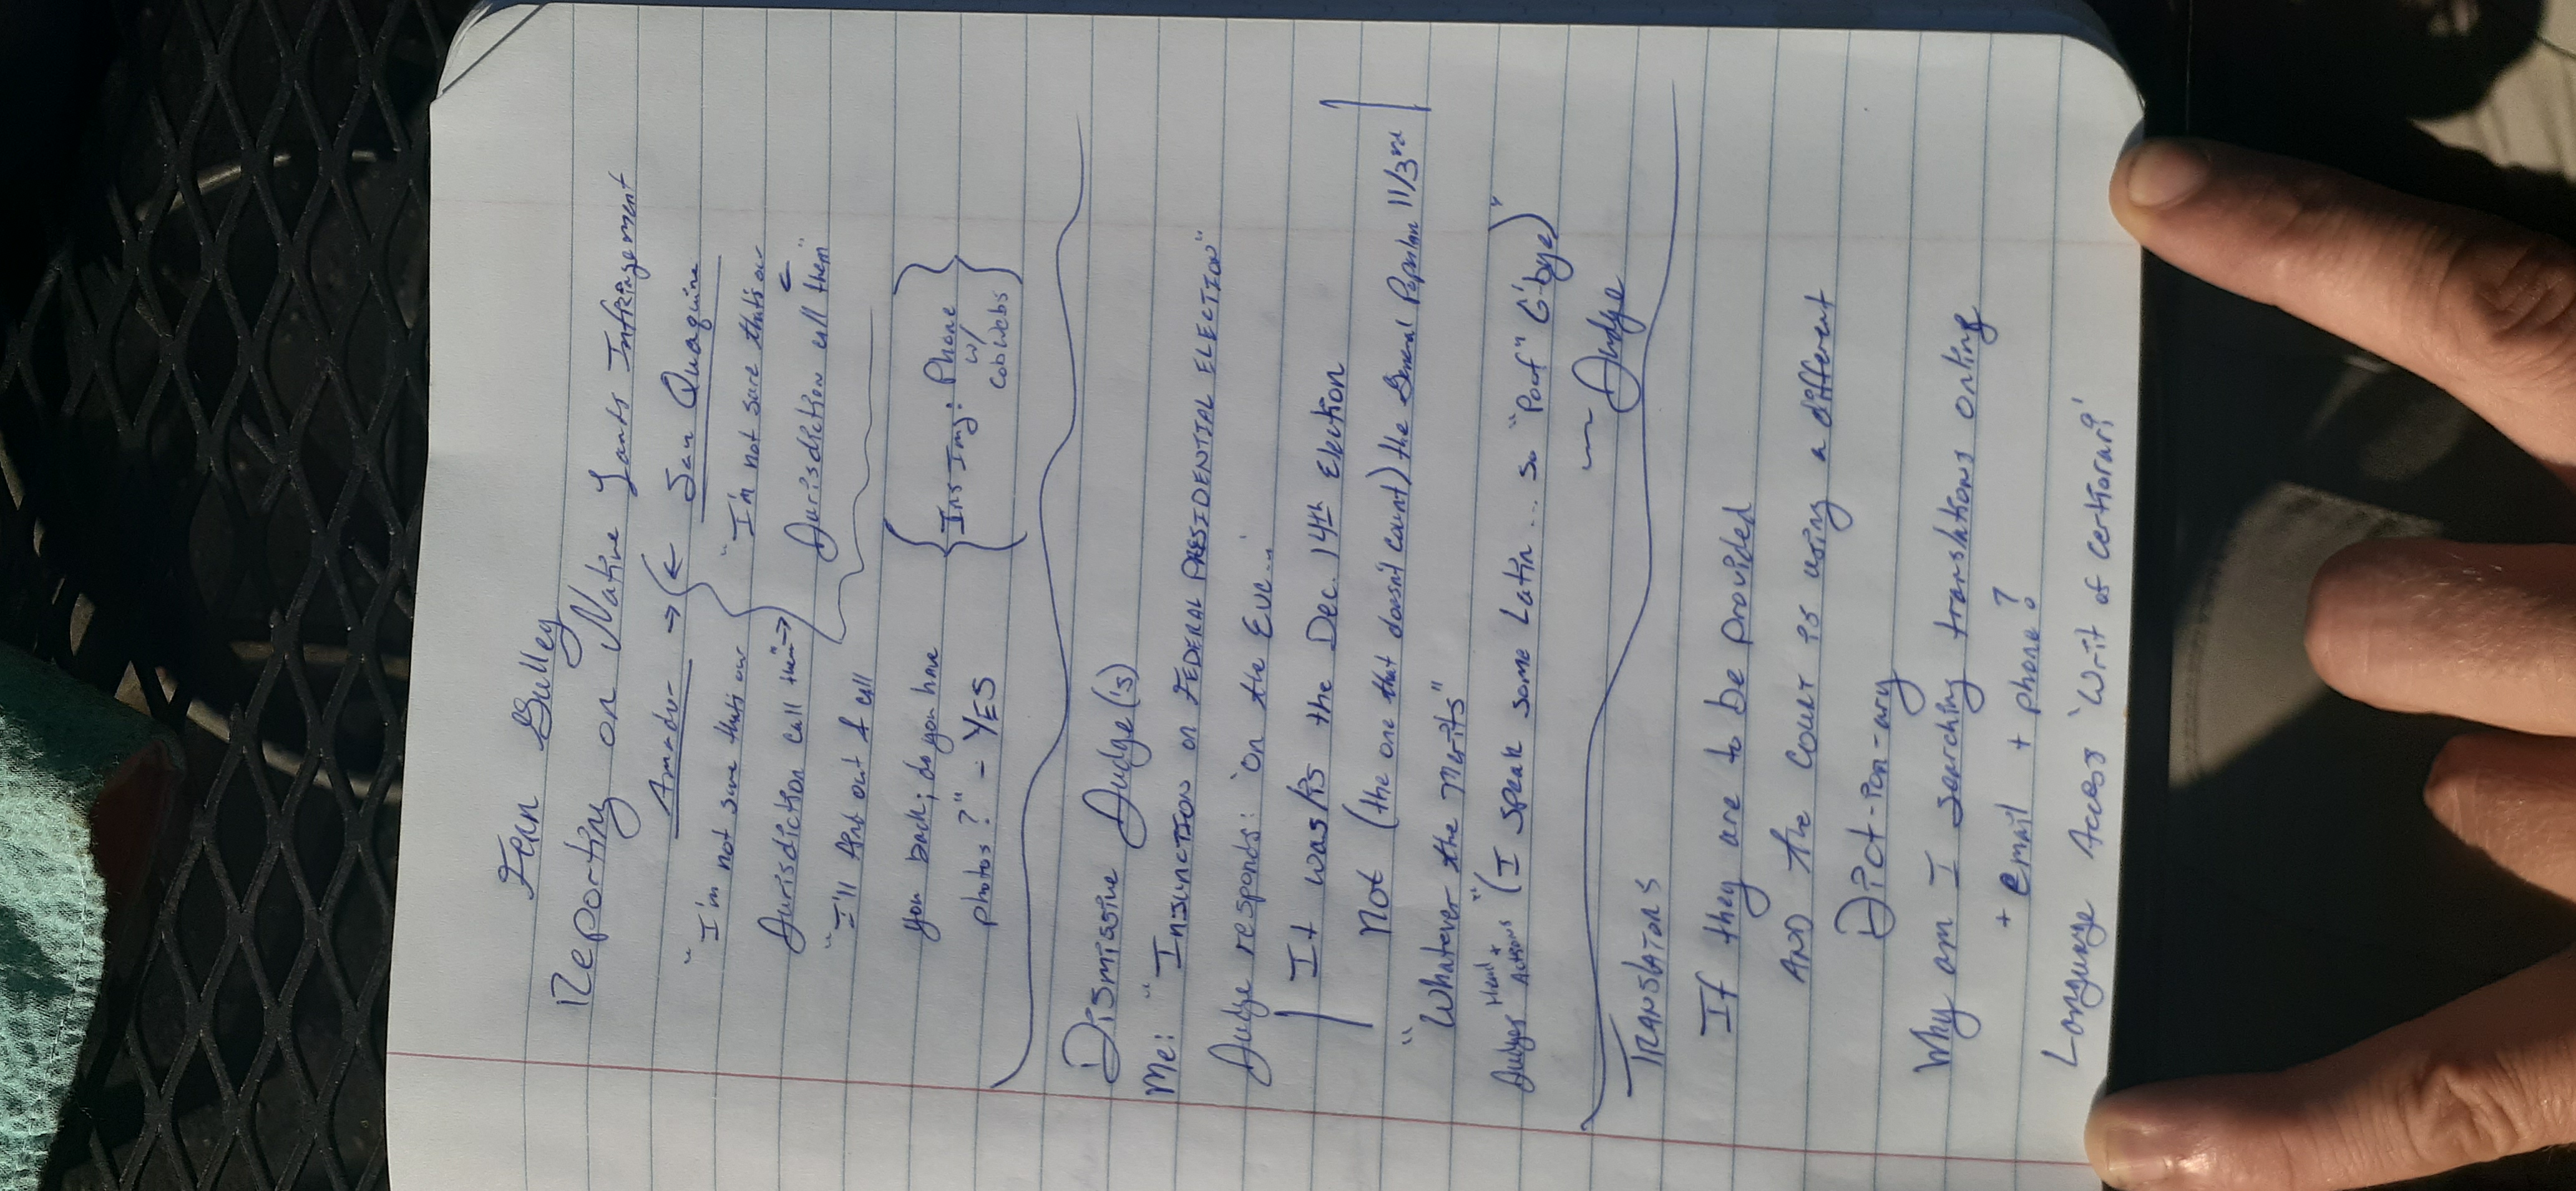 Fern Gulley
Reporting on Native Lands Infringement
Amador → ( ← San Quaquine
"I'm not sure thats our
Jurisdiction call them →
"I'm not sure thats our
Jurisdiction call them"
"I'll find out & call
you back; do you have
photos?" - YES
{ Ins Img: Phone
w/
cobwebs }
Dismissive Judge(s)
Me: "Injunction on FEDERAL PRESIDENTIAL ELECTION"
Judge responds: 'on the Eve...'
It was/is the Dec. 14th Election
Not (the one that doesn't count) the General Population 11/3rd
"Whatever the Merits"
Judges Hand + Actions "(I speak some Latin... so "Poof" G'bye)"
~ Judge
TRANSLATORS
If they are to be provided
AND the Court is using a different
Dict-ion-ary
Why am I searching translations online
+ email + phone?
Language Access 'Writ of certiorari'